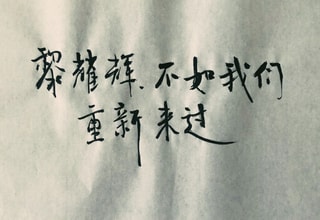 黎耀辉、不如我们
重新来过